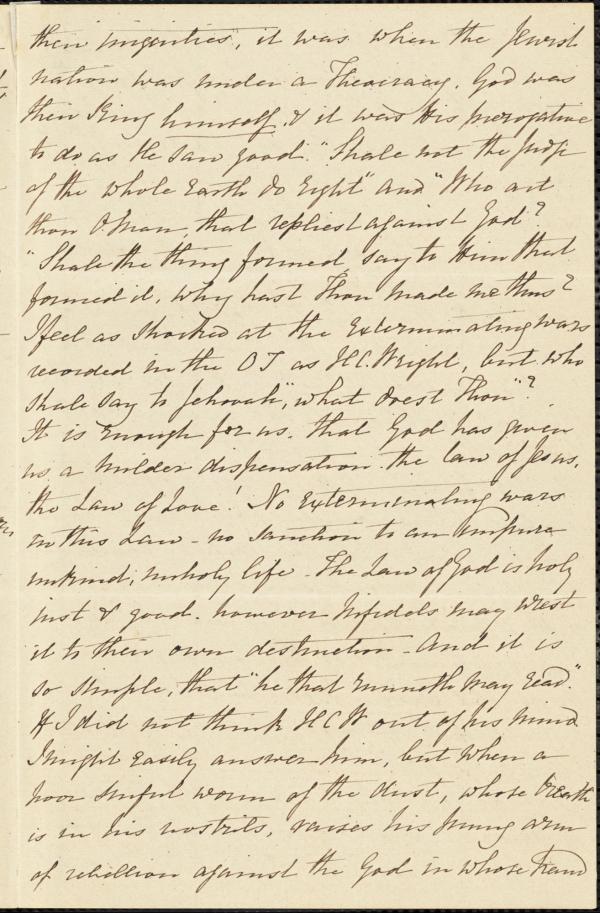 their iniquities, it was when the Jewish
nation was under a Theocracy. God was
their King himself, & it was His prerogative
to do as He saw good. "Shall not the Judge
of the whole Earth do right" and "Who art
thou O. Man, that repliest against God?
"Shall the thing formed say to Him that
formed it, why hast Thou made me thus?
I feel as shocked at the Exterminating wars
recorded in the OT as H.C. Wright, but who
shall say to Jehovah", what doest Thou"?
It is enough for us, that God has given
us a milder dispensation the law of Jesus,
the Law of Love! No Exterminating wars
in this Law - no sanction to an impure
unkind, unholy life - The Law of God is holy
just & good. however Infidels may wrest
it to their own destruction - And it is
so simple, that "he that runneth may read".
If I did not think HCW out of his mind
I might easily answer him, but when a
poor sinful worm of the dust, whose breath
is in his nostrils, raises his puny arm
of rebellion against the God in whose hand